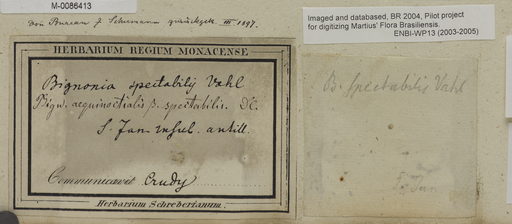 M-0086413
Von Bureau & Schumann zurückgek. III 1897.
Imaged and databased, BR 2004, Pilot project
for digitizing Martius' Flora Brasiliensis.
ENBI-WP13 (2003-2005)
HERBARIUM REGIUM MONACENSE
Bignonia spectabilis Vahl
Bign. aequinoctialis β. spectabilis. DC.
S. Jan insul. antill.
Communicavit Crudy
Herbarium Schreberianum.
B. spectabilis Vahl